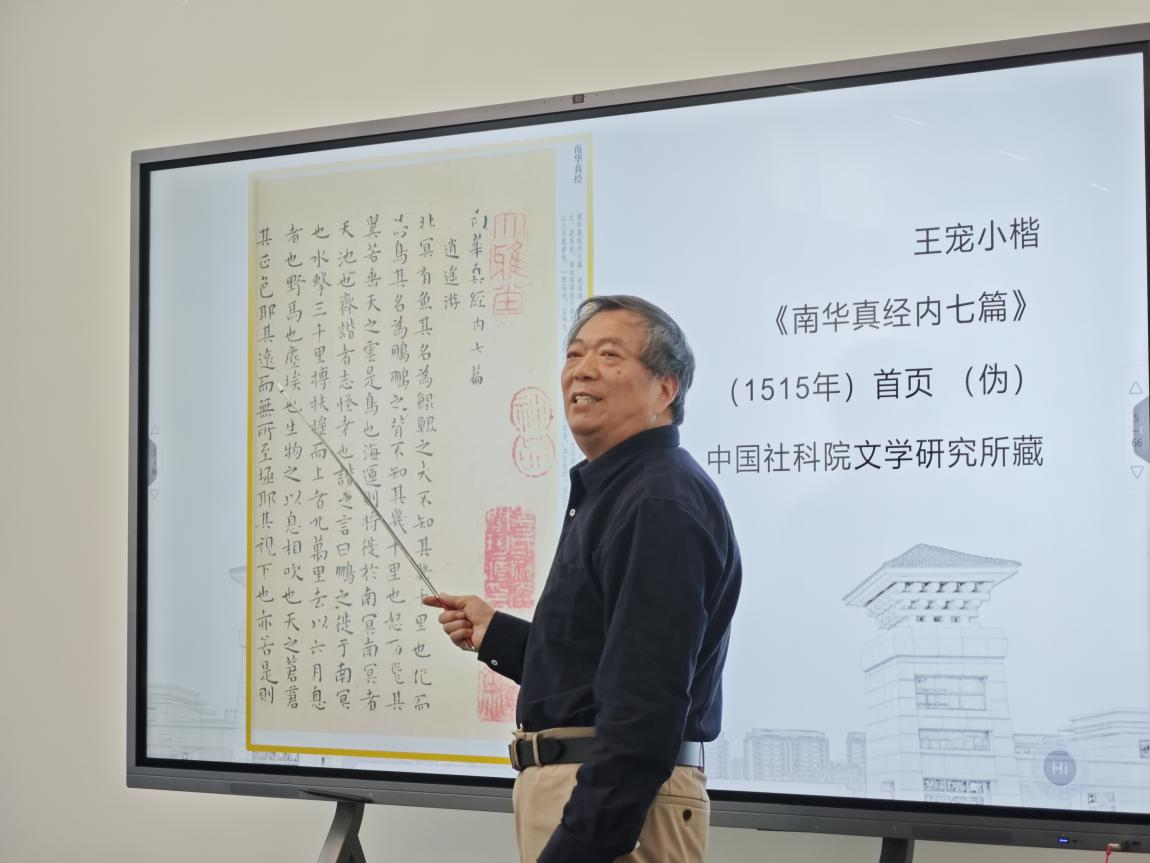 南华真经
南華真經内七篇
逍遥游
北冥有魚其名為鯤鯤之大不知其幾千里也化而
為鳥其名為鵬鵬之背不知其幾千里也怒而飛其
翼若垂天之雲是鳥也海運則將徙於南冥南冥者
天池也齊諧者志怪者也諧之言曰鵬之徙于南冥
也水擊三千里摶扶摇而上者九萬里去以六月息
者也野馬也塵埃也生物之以息相吹也天之蒼蒼
其正色耶其遠而無所至極耶其視下也亦若是則
王宠小楷
《南华真经内七篇》
（1515年）首页 （伪）
中国社科院文学研究所藏
5
66
Hi